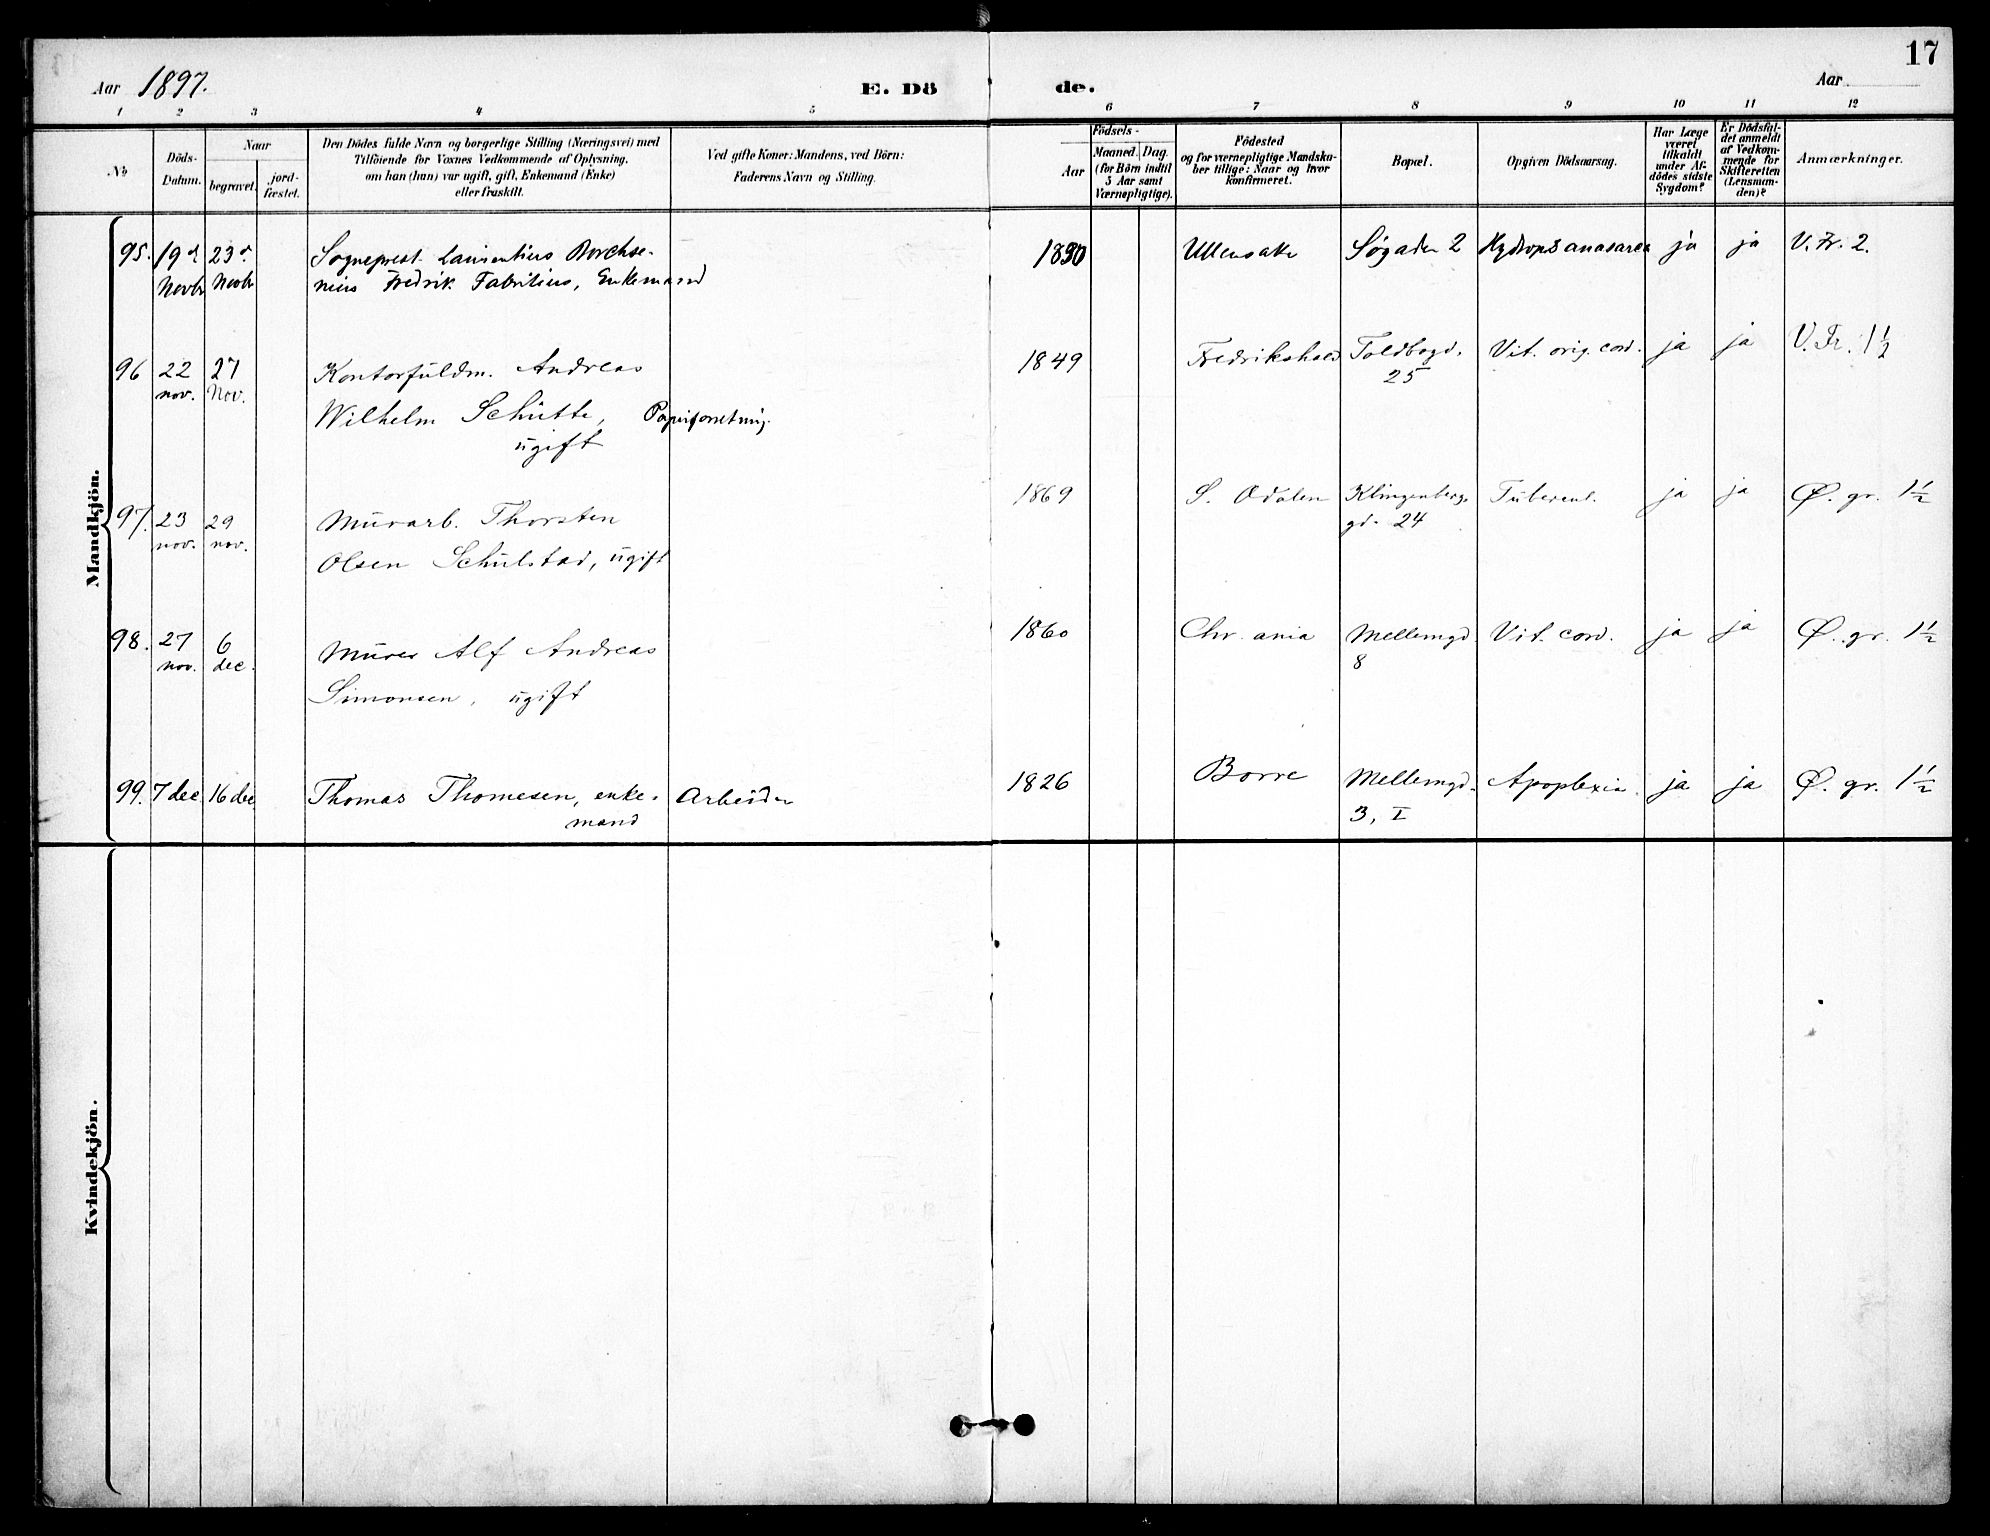 17
Aar 1897.
E. Dö
de.
Aar
1 2 3 4 5 6 7 8 9 10 11 12
No
Döds-
Datum.
Naar
begravet.
jord-
fæstet.
Den Dödes fulde Navn og borgerlige Stilling (Næringsvei) med
Tilföiende for Voxnes Vedkommende af Oplysning.
om han (hun) var ugift, gift, Enkemand (Enke)
eller fraskilt.
Ved gifte Koner: Mandens, ved Börn:
Faderens Navn og Stilling.
Födsels-
Aar
Maaned. Dag.
(for Börn indtil
5 Aar samt
Værnepligtige).
Födested
og for værnepligtige Mandska-
ber tillige: Naar og hvor
konfirmeret.
Bopæl.
Opgiven Dödsaarsag.
Har Læge
været
tilkaldt
under Af-
dödes sidste
Sygdom?
Er Dödsfal-
det anmeldt
af Vedkom-
mende for
Skifteretten
(Lensman-
den)?
Anmærkninger.
Mandkjön.
95. 19d 23d Sogneprest Laurentius Borchse- 1830 Ullensaker Søgaden 2 Hydrops anasarca ja ja V. Fr. 2.
Novbr Novbr nius Fredrik Fabritius, Enkemand
96 22 27 Kontorfuldm. Andreas 1849 Fredrikshald Toldbogd. Vit. orig. cord. ja ja V. Fr. 1 1/2
nov. Nov. 25
Wilhelm Schütte, Papirforretning.
ugift
97. 23 29 Murarb. Thorsten 1869 S. Odalen Klingenbergs Tubercul. ja ja Ø. gr. 1 1/2
nov. nov. gd. 24
Olsen Schulstad, ugift
98. 27 6 Murer Alf Andreas 1860 Chr.ania Mellemgd Vit. cord. ja ja Ø. gr. 1 1/2
nov. dec. 8
Simonsen, ugift
99. 7 dec 16 dec Thomas Thomesen, enke- Arbeider 1826 Borre Mellemgd. Apoplexia. ja ja Ø. gr. 1 1/2
mand 3, I
Kvindekjön.